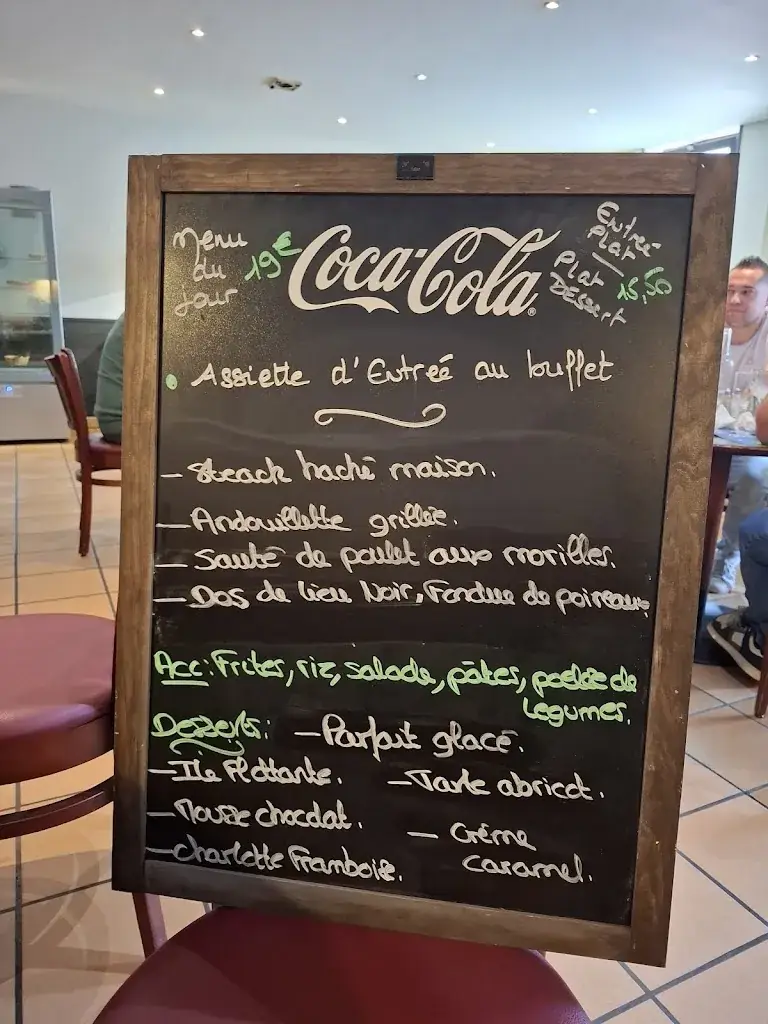 Menu
du
Jour
19€
Coca-Cola®
Entrée
Plat
Plat
Désert
15,50
Assiette d'Entreé au buffet
- Steack haché maison.
- Andouillette grillée.
- Sauté de poulet aux morilles.
- Dos de lieu Noir, Fondue de poireaux
Acc: Frites, riz, salade, pâtes, poêlée de
Legumes.
Desserts: - Parfait glacé.
- Ile Flottante. - Tarte abricot.
- Mousse chocolat. - Créme
- Charlotte Framboise. caramel.